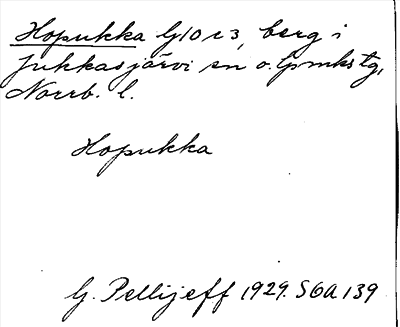 Hopukka G10c3, berg i
Jukkasjärvi sn o. lpmks tg,
Norrb. l.
Hopukka
G. Pellijeff 1929. SGA 139